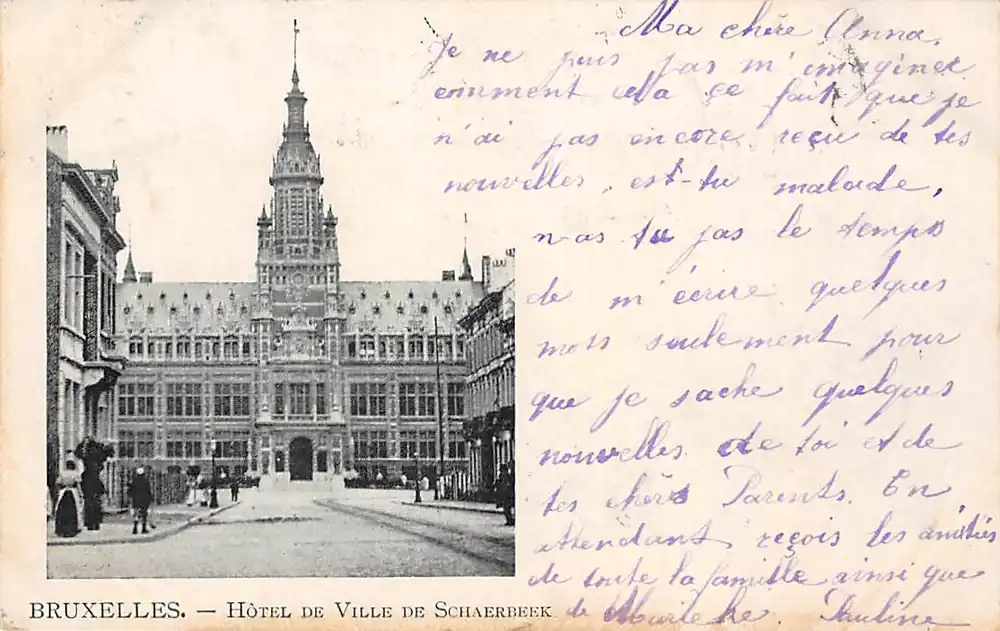 Ma chère Anna,
Je ne puis pas m'imaginer
comment cela ce fait que je
n'ai pas encore reçu de tes
nouvelles, est-tu malade,
n-as tu pas le temps
de m'écrire quelques
mots seulement pour
que je sache quelques
nouvelles de toi et de
tes chers Parents. En
attendant reçois les amitiés
de toute la famille ainsi que
de Marieke. Pauline
BRUXELLES. — HÔTEL DE VILLE DE SCHAERBEEK